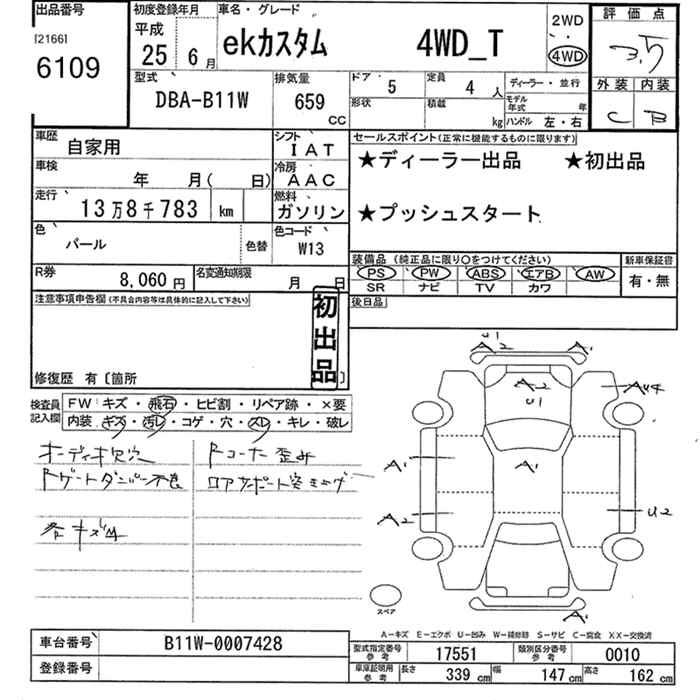 出品番号 初度登録年月 車名・グレード 2WD 評価点
[2166] 平成 ekカスタム 4WD_T ・・ 3.5
6109 25年 6月 4WD 外装 内装
C B
型式 排気量 ドア 5 定員 4人 ディーラー・並行
DBA-B11W 659 CC 形状 積載 kg モデル年式 年
ハンドル 左・右
車歴 自家用 シフト IAT セールスポイント(正常に機能するものに限ります)
車検 年 月( 日) 冷房 AAC ★ディーラー出品 ★初出品
走行 13万8千783 km 燃料 ガソリン ★プッシュスタート
色 パール 色替 色コード W13
装備品 (純正品に限り○をつけてください) 新車保証書
PS PW ABS エアB AW 有・無
SR ナビ TV カワ
R券 8,060円 名変通知期限 月 日
後日品
注意事項申告欄(不具合内容等は具体的に記入して下さい) 初出品
修復歴 有 [箇所 ]
検査員記入欄 FW:キズ・飛石・ヒビ割・リペア跡・×要
内装:キズ・汚レ・コゲ・穴・スレ・キレ・破レ
オーディオ欠穴 Rコーナー歪み
Rゲートダンパー不良 ロアサポート突き上げ
各キズ凹
U1
A2 A1
A2
U1
AU4
A1 A1
A2 U2
A1
スペア
A-キズ E-エクボ U-凹み W-補修跡 S-サビ C-腐食 XX-交換済
車台番号 B11W-0007428 型式指定番号 参考 17551 類別区分番号 参考 0010
登録番号 車庫証明用 参考 長さ 339 cm 幅 147 cm 高さ 162 cm